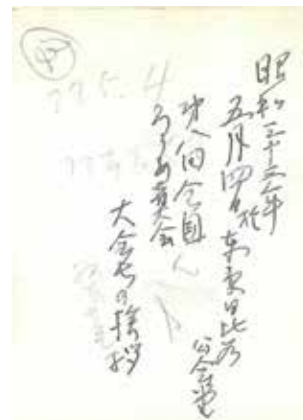 昭和三十三年
五月四日於 東京日比谷
公会堂
第八回全国
ろうあ者大会
大会長の挨拶